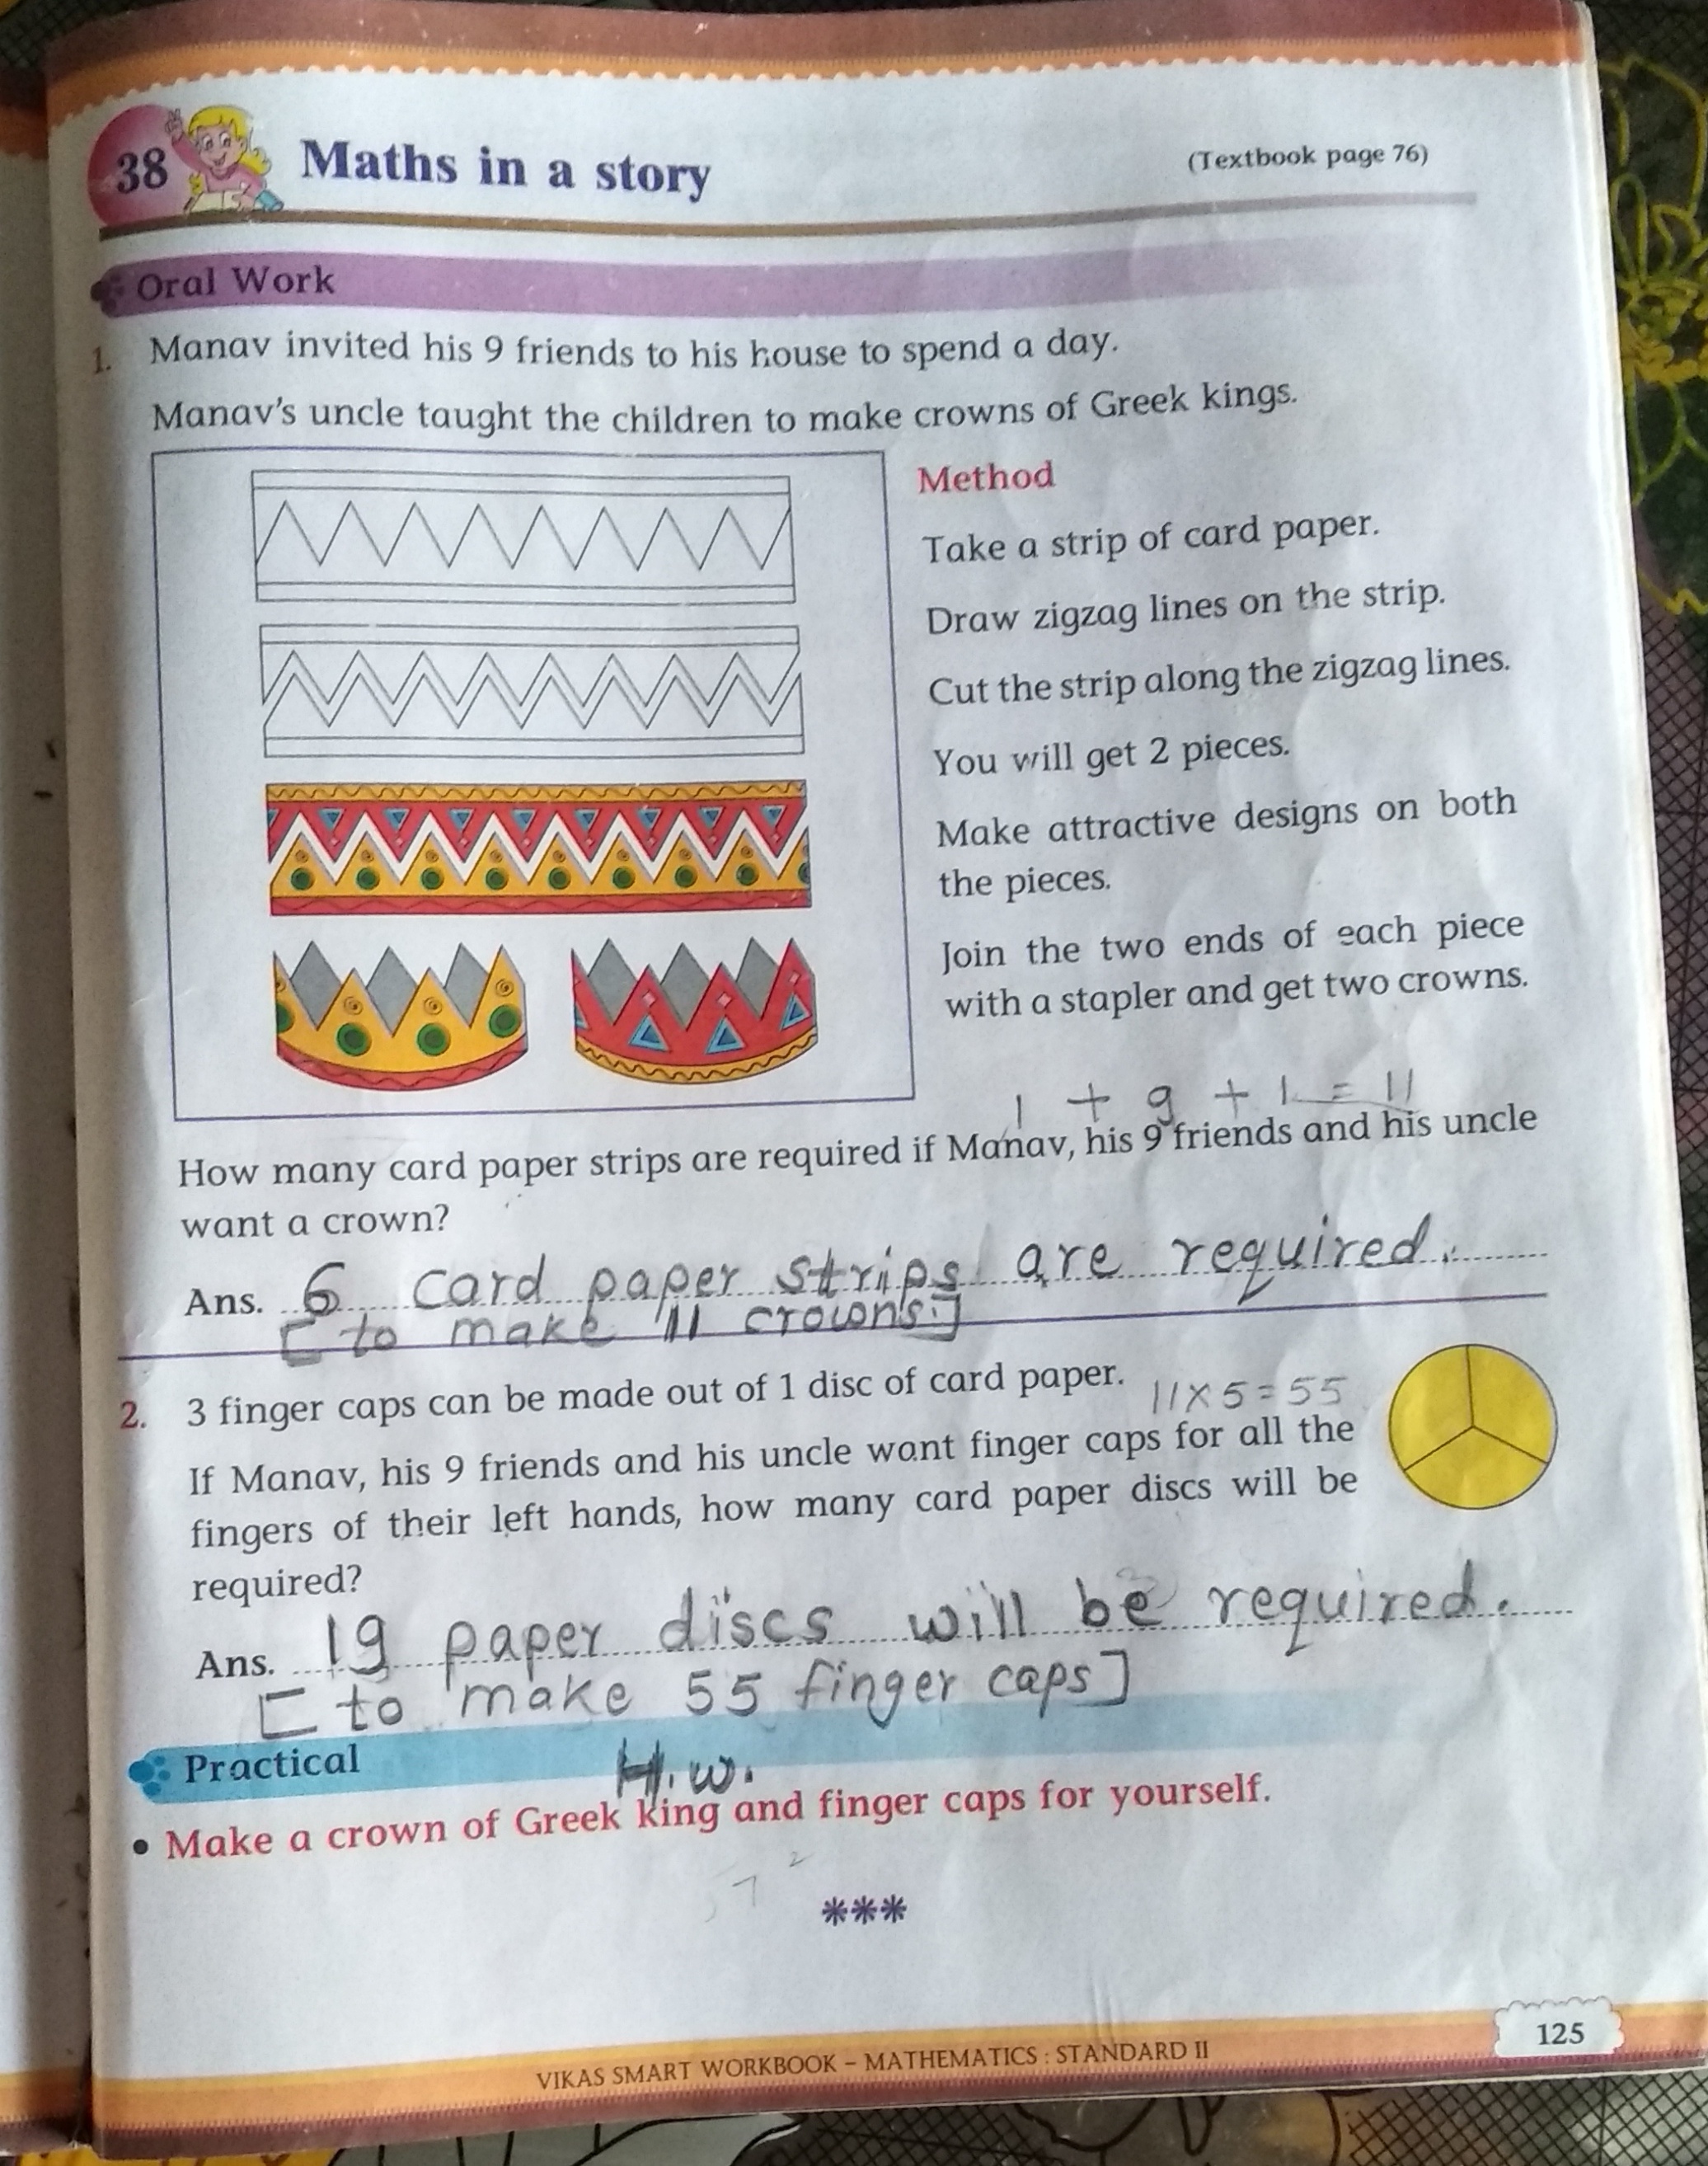 38
Maths in a story
(Textbook page 76)
Oral Work
1. Manav invited his 9 friends to his house to spend a day.
Manav's uncle taught the children to make crowns of Greek kings.
Method
Take a strip of card paper.
Draw zigzag lines on the strip.
Cut the strip along the zigzag lines.
You will get 2 pieces.
Make attractive designs on both
the pieces.
Join the two ends of each piece
with a stapler and get two crowns.
1 + 9 + 1 = 11
How many card paper strips are required if Manav, his 9 friends and his uncle
want a crown?
Ans. 6 card paper strips are required.
[to make 11 crowns.]
2. 3 finger caps can be made out of 1 disc of card paper.
11 x 5 = 55
If Manav, his 9 friends and his uncle want finger caps for all the
fingers of their left hands, how many card paper discs will be
required?
Ans. 19 paper discs will be required.
[to make 55 finger caps]
Practical
H.w.
• Make a crown of Greek king and finger caps for yourself.
***
VIKAS SMART WORKBOOK – MATHEMATICS : STANDARD II
125